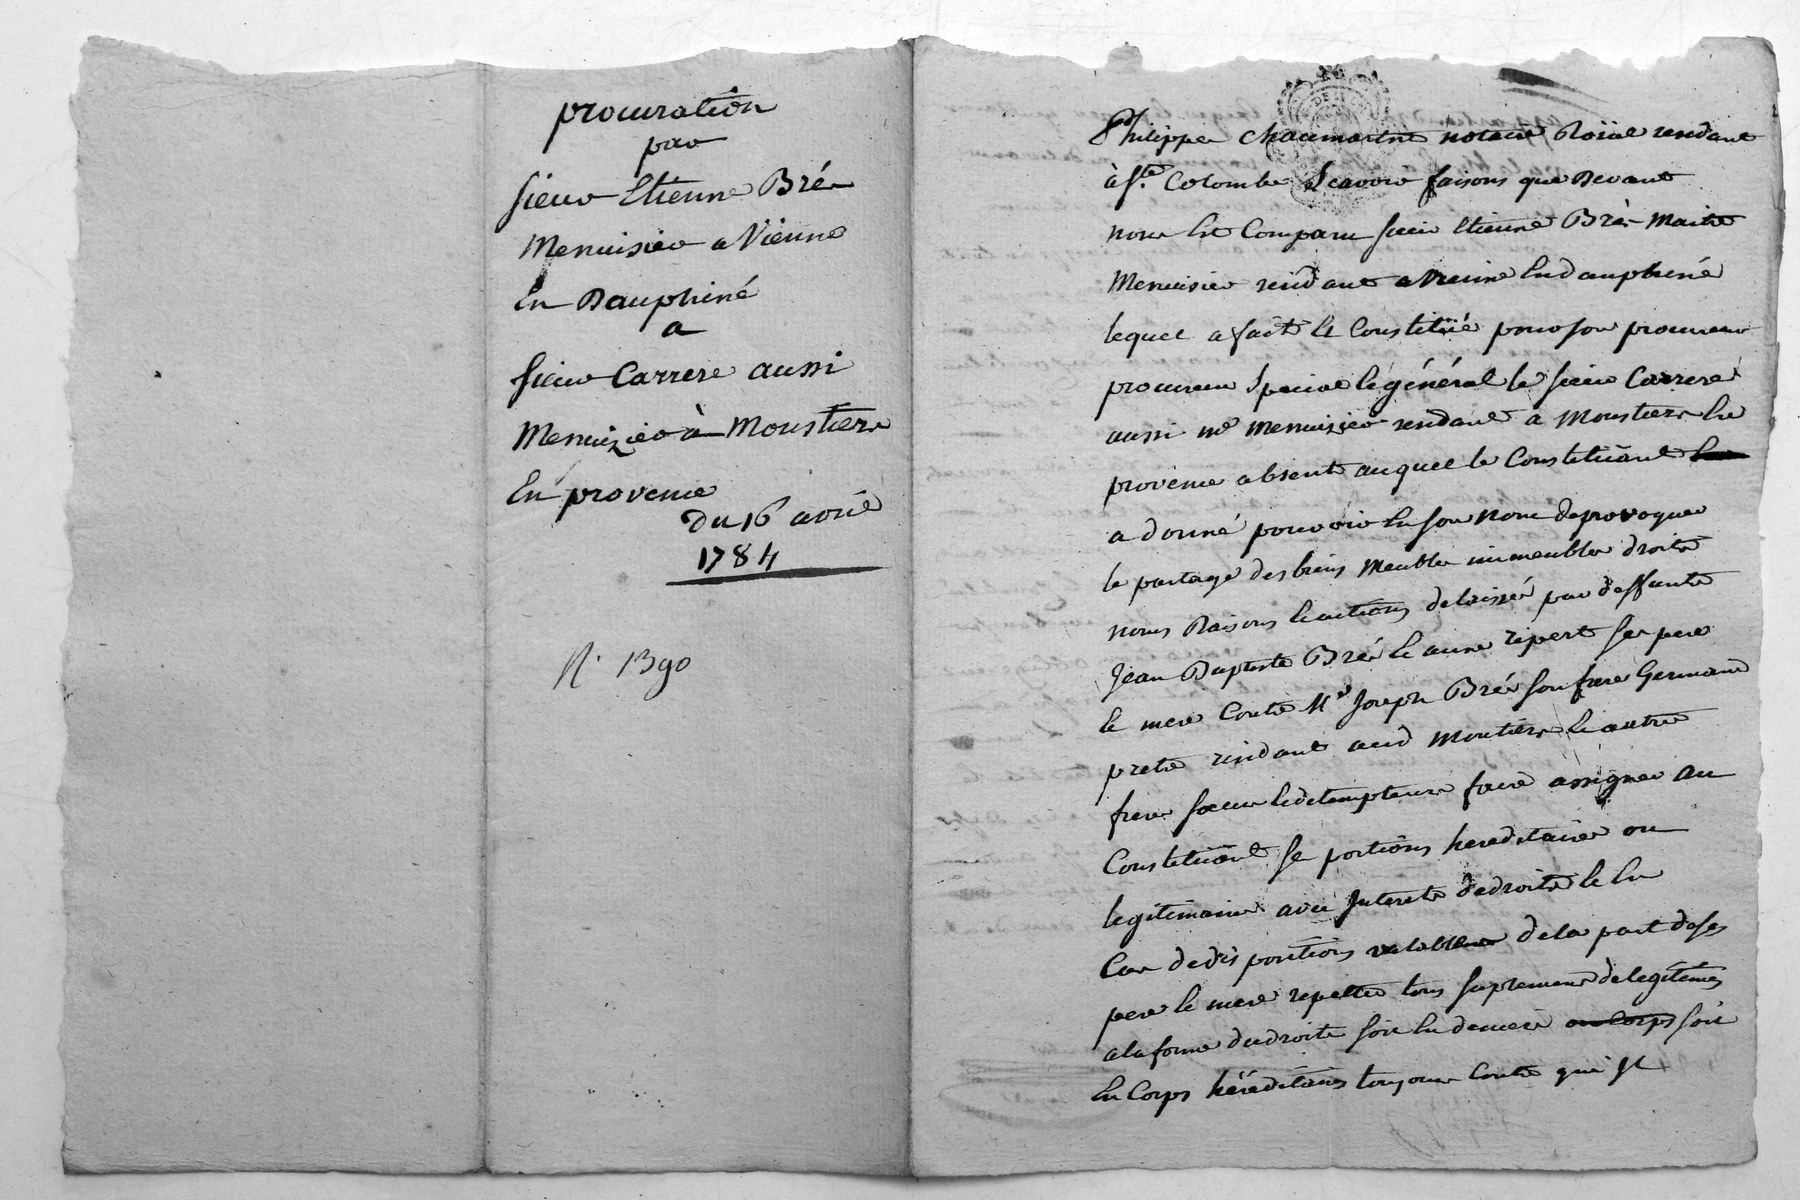 procuration
par
sieur Etienne Bré
Menuisier a Vienne
En Dauphiné
a
sieur Carrere aussi
Menuizier à Moustiers
En provence
du 16 avril
1784
N. 1390
Philippe Chaumartin notaire Roïal residant
à Ste Colombe Scavoir faisons que Devant
nous Est Comparu sieur Etienne Bré Maitre
Menuisier residant a Vienne En dauphiné
lequel a fait Et Constitüé pour son procureur
procureur Special Et général le sieur Carrere
aussi me Menuisier residant a Moustiers En
provence absent auquel le Constitüant
a donné pouvoir En son nom de provoquer
le partage des biens Meubles immeubles droits
noms Raisons Et actions delaissés par deffunts
Jean Baptiste Bré Et anne ripert ses pere
Et mere Contre Mre Joseph Bré son frere Germain
pretre residant aud Moutiers Et autres
freres soeurs Et detempteurs faire assigner au
Constitüant ses portions hereditaires ou
legitimaires avec Interets de droits Et En
Cas de dispositions valables de la part de ses
pere Et mere repetter tous suplements de legitimes
a la forme du droit soit En deniers ou Corps soit
En Corps héréditaires toujours Contre qui Il